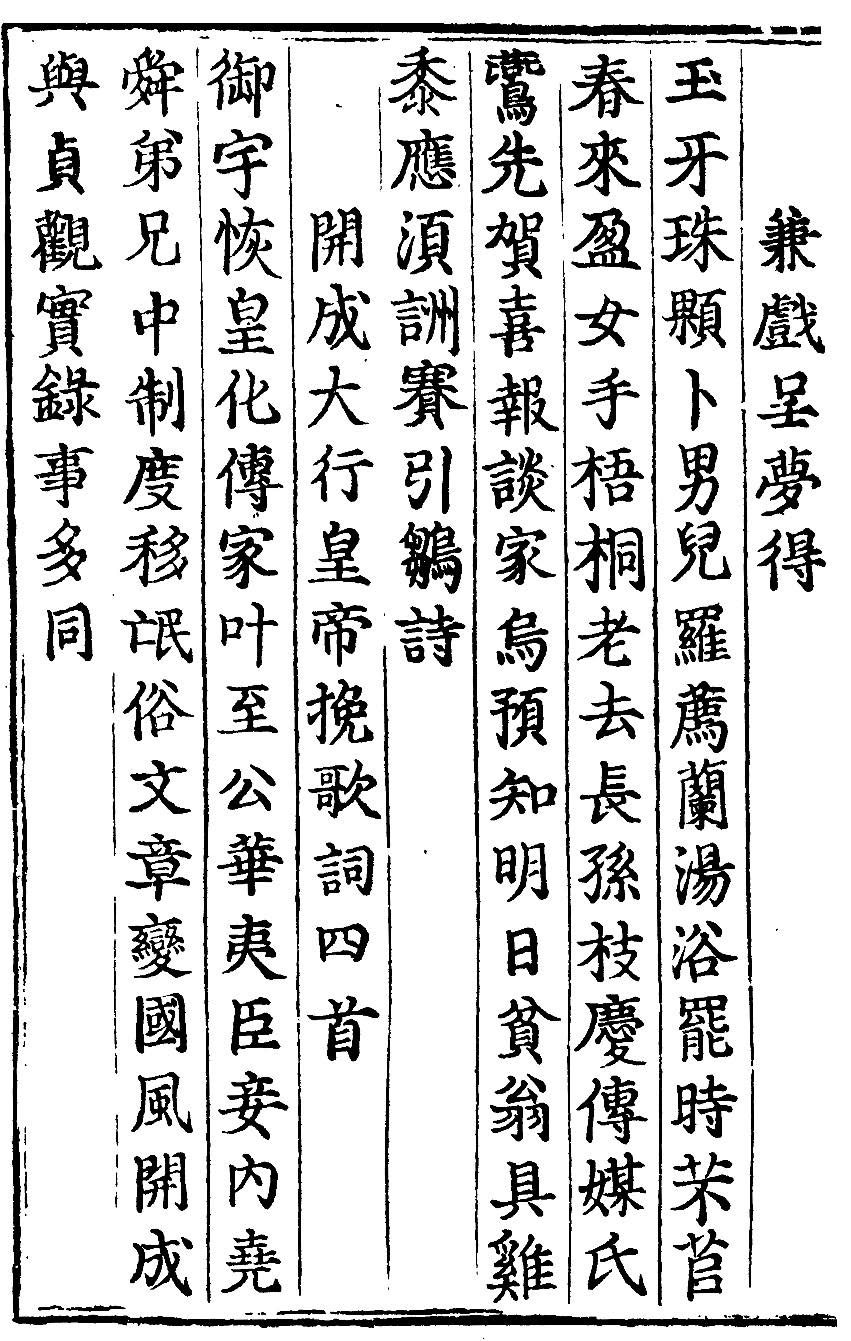 兼戲呈夢得
玉牙珠顆卜男兒羅薦蘭湯浴罷時芣苢
春來盈女手梧桐老去長孫枝慶傳媒氏
鷰先賀喜報談家烏預知明日貧翁具雞
黍應須詶賽引鶵詩
開成大行皇帝挽歌詞四首
御宇恢皇化傳家叶至公華夷臣妾內堯
舜弟兄中制度移氓俗文章變國風開成
與貞觀實錄事多同